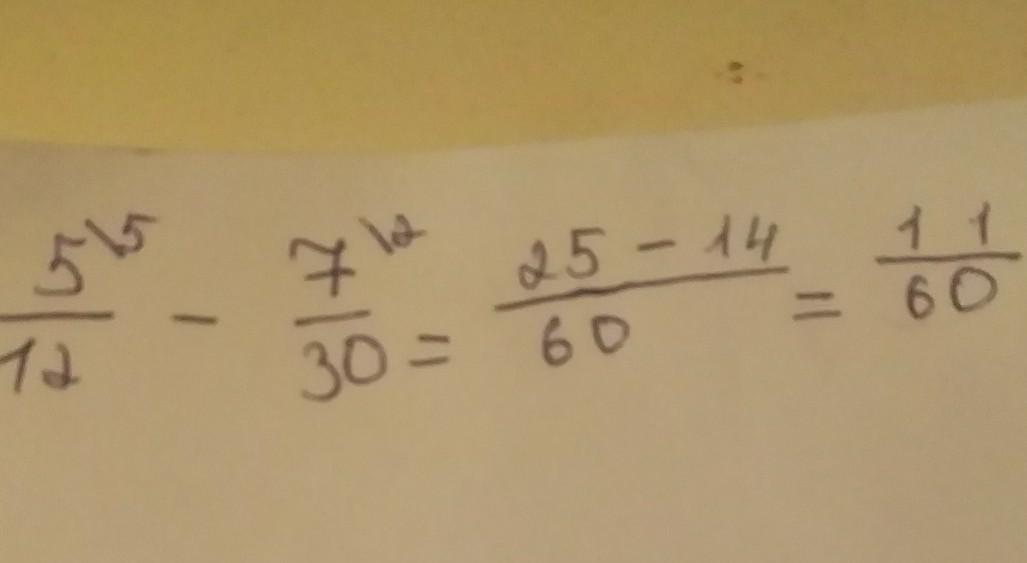 5\5/12 - 7\2/30 = 25-14/60 = 11/60